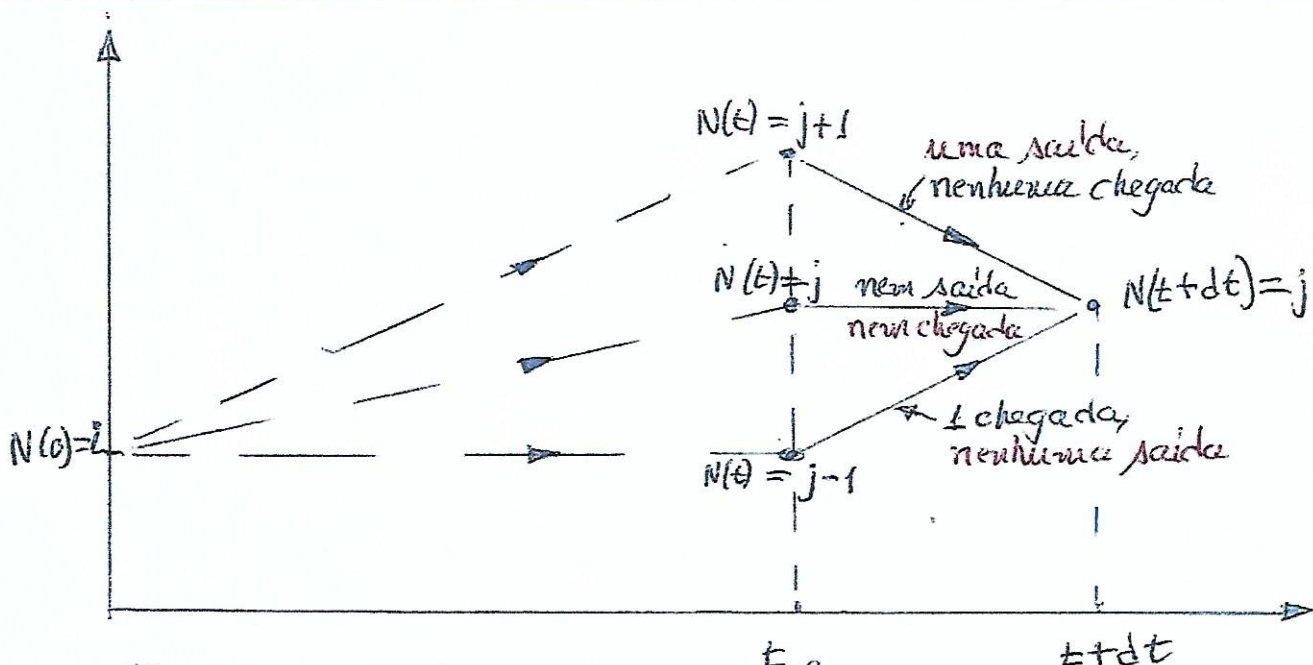 N(t) = j+1
uma saída,
nenhuma chegada
N(t)=j
nem saída
nem chegada
N(t+dt)=j
N(0)=i
1 chegada,
nenhuma saída
N(t) = j-1
t
t+dt